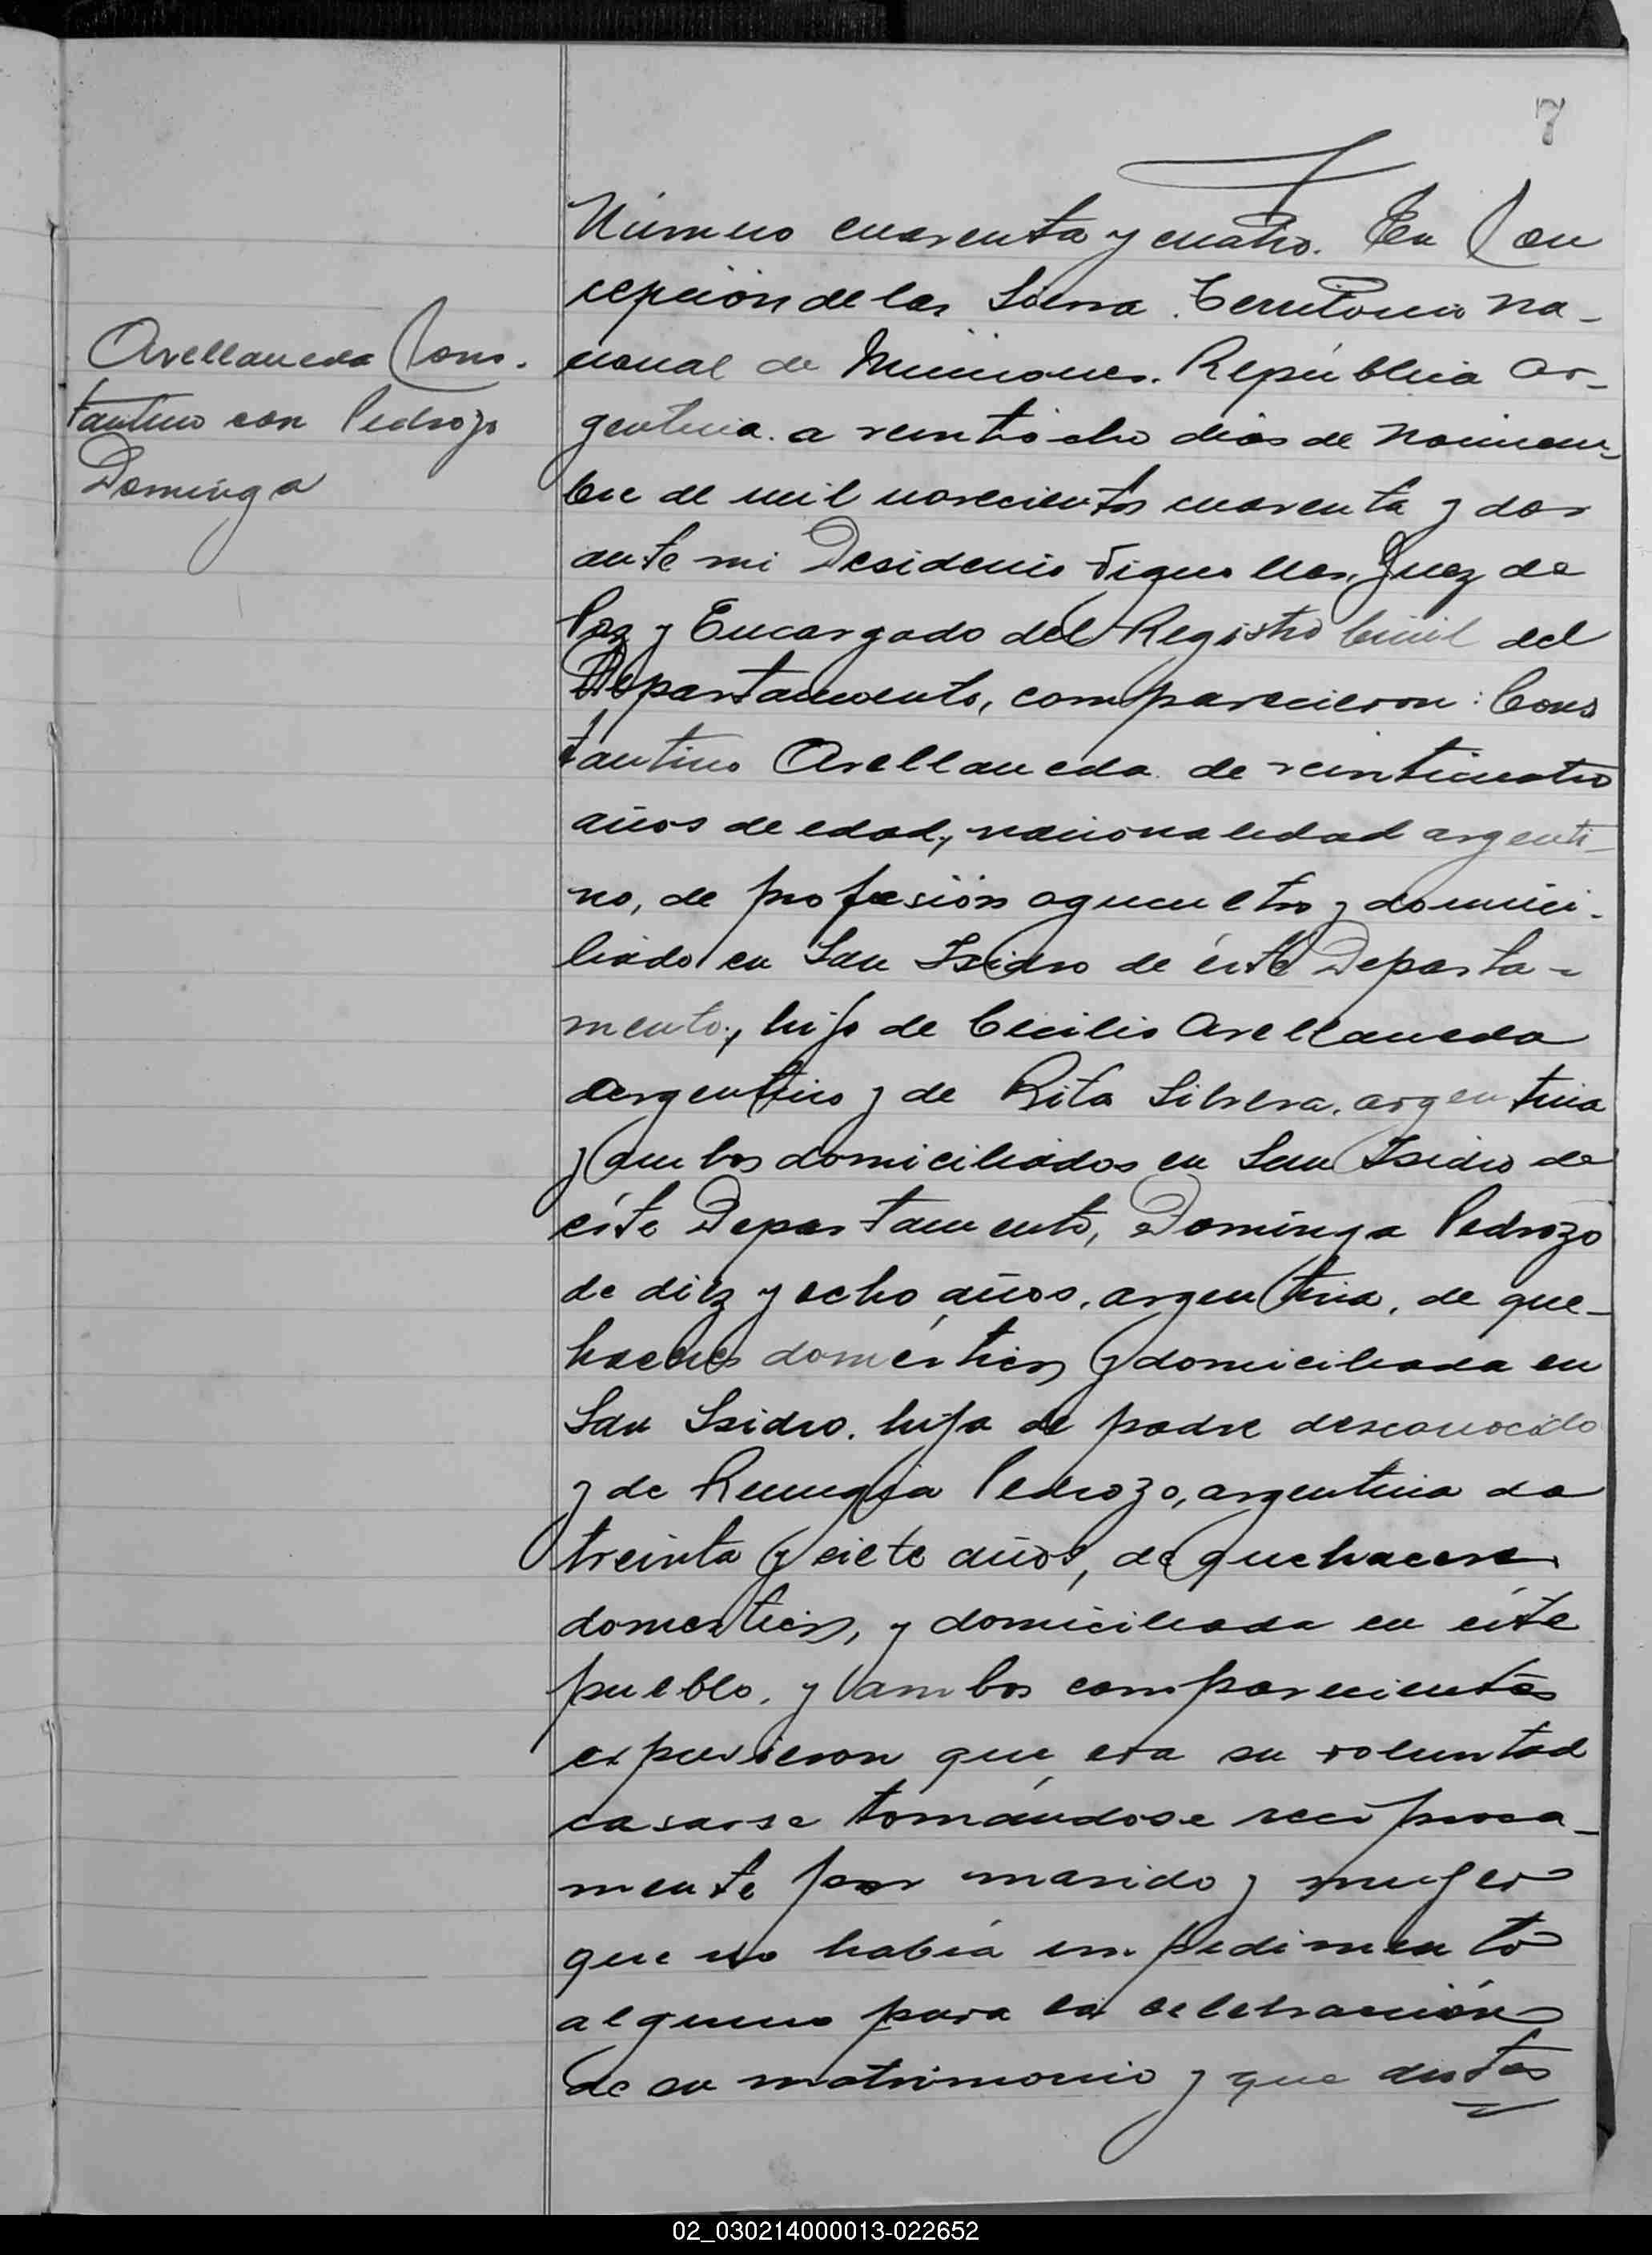 7
Avellaneda Cons-
tantino con Pedrozo
Dominga
Número cuarenta y cuatro. En Con
cepción de la Sierra. Territorio Na-
cional de Misiones. República Ar-
gentina. a veintiocho dias de Noviem-
bre de mil novecientos cuarenta y dos
ante mi Desiderio Juez de
Paz y Encargado del Registro Civil del
Departamento, comparecieron: Cons
tantino Avellaneda de veinticuatro
años de edad, nacionalidad argenti-
no, de profesión agricultor y domici-
liado en San Isidro de éste Departa-
mento, hijo de Cecilio Avellaneda
argentino y de Rita Silvera, argentina
y ambos domiciliados en San Isidro de
éste Departamento, Dominga Pedrozo
de diez y ocho años, argentina, de que-
haceres domésticos y domiciliada en
San Isidro. hija de padre desconocido
y de Remigia Pedrozo, argentina de
treinta y siete años, de quehaceres
domesticos, y domiciliada en éste
pueblo, y ambos comparecientes
expusieron que era su voluntad
casarse tomándose reciproca-
mente por marido y muger
que no había impedimento
alguno para la celebración
de su matrimonio y que
02_030214000013-022652